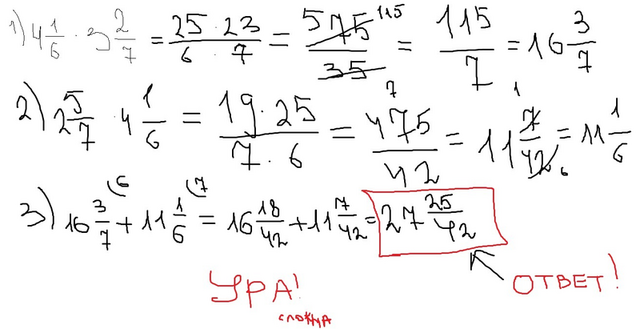 1) 4 1/6 · 3 2/7 = 25 · 23 / 6 · 7 = 575 / 35 = 115 / 7 = 16 3/7
115
7
2) 2 5/7 · 4 1/6 = 19 · 25 / 7 · 6 = 475 / 42 = 11 7/42 = 11 1/6
1
6
3) 16 3/7 + 11 1/6 = 16 18/42 + 11 7/42 = 27 25/42
6 7
УРА!
ОТВЕТ!